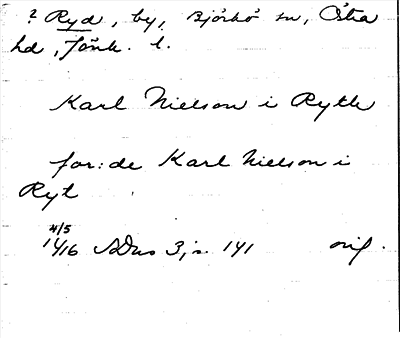 ? Ryd, by, Björkö sn, Östra
hd, Jönk. l.
Karl Nielson i Ryth
for:de Karl Nielson i
Ryt
4/5
1416 SDns 3, s. 141 orig.